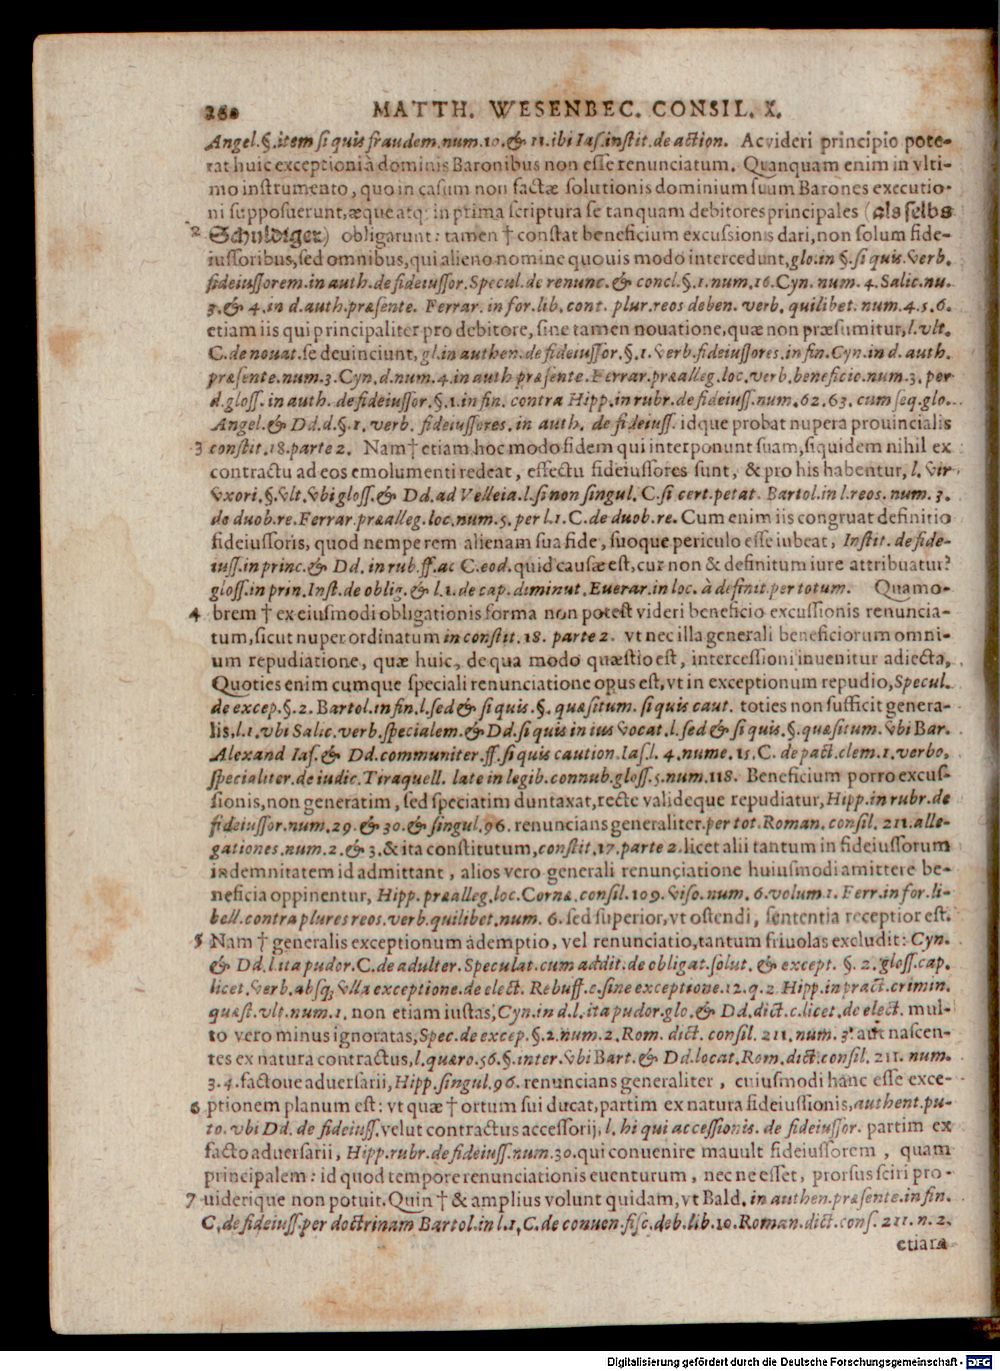 260 MATTH. WESENBEC. CONSIL. X.
Angel. §. item si quis fraudem. num. 10. & 11. ibi Ias. instit. de action. Ac videri principio pote-
rat huic exceptioni à dominis Baronibus non esse renunciatum. Quanquam enim in vlti-
mo instrumento, quo in casum non factæ solutionis dominium suum Barones executio-
ni supposuerunt, æque atq; in prima scriptura se tanquam debitores principales (als selbs
2 Schuldiger) obligarunt: tamen † constat beneficium excussionis dari, non solum fide-
iussoribus, sed omnibus, qui alieno nomine quouis modo intercedunt, glo. in §. si quis. verb.
fideiussorem. in auth. de fideiussor. Specul. de renunc. & concl. §. 1. num. 16. Cyn. num. 4. Salic. nu.
3. & 4. in d. auth. præsente. Ferrar. in for. lib. cont. plur. reos deben. verb. quilibet. num. 4. 5. 6.
etiam iis qui principaliter pro debitore, sine tamen nouatione, quæ non præsumitur, l. vlt.
C. de nouat. se deuinciunt, gl. in authen. de fideiussor. §. 1. verb. fideiussores. in fin. Cyn. in d. auth.
præsente. num. 3. Cyn. d. num. 4. in auth præsente. Ferrar. præalleg. loc. verb. beneficio. num. 3. per
d. gloss. in auth. de fideiussor. §. 1. in fin. contra Hipp. in rubr. de fideiuss. num. 62. 63. cum seq. glo.
Angel. & Dd. d. §. 1. verb. fideiussores. in auth. de fideiuss. idque probat nupera prouincialis
3 constit. 18. parte 2. Nam † etiam hoc modo fidem qui interponunt suam, siquidem nihil ex
contractu ad eos emolumenti redeat, effectu fideiussores sunt, & pro his habentur, l. vir
vxori. §. vlt. vbi gloss. & Dd. ad Velleia. l. si non singul. C. si cert. petat. Bartol. in l. reos. num. 3.
de duob. re. Ferrar. præalleg. loc. num. 5. per l. 1. C. de duob. re. Cum enim iis congruat definitio
fideiussoris, quod nempe rem alienam sua fide, suoque periculo esse iubeat, Instit. de fide-
iuss. in princ. & Dd. in rub. ff. ac C. eod. quid causæ est, cur non & definitum iure attribuatur?
gloss. in prin. Inst. de oblig. & l. 1. de cap. diminut. Euerar. in loc. à definit. per totum. Quamo-
4 brem † ex eiusmodi obligationis forma non potest videri beneficio excussionis renuncia-
tum, sicut nuper ordinatum in constit. 18. parte 2. vt nec illa generali beneficiorum omni-
um repudiatione, quæ huic, de qua modo quæstio est, intercessioni inuenitur adiecta,
Quoties enim cumque speciali renunciatione opus est, vt in exceptionum repudio, Specul.
de excep. §. 2. Bartol. in fin. l. sed & si quis. §. quæsitum. si quis caut. toties non sufficit genera-
lis, l. 1. vbi Salic. verb. specialem. & Dd. si quis in ius vocat. l. sed & si quis. §. quæsitum. vbi Bar.
Alexand Ias. & Dd. communiter. ff. si quis caution. Ias. l. 4. nume. 15. C. de pact. clem. 1. verbo,
specialiter. de iudic. Tiraquell. late in legib. connub. gloss. 5. num. 118. Beneficium porro excus-
sionis, non generatim, sed speciatim duntaxat, recte valideque repudiatur, Hipp. in rubr. de
fideiussor. num. 29. & 30. & singul. 96. renuncians generaliter. per tot. Roman. consil. 211. alle-
gationes. num. 2. & 3. & ita constitutum, constit. 17. parte 2. licet alii tantum in fideiussorum
indemnitatem id admittant, alios vero generali renunciatione huiusmodi amittere be-
neficia oppinentur, Hipp. præalleg. loc. Corne. consil. 109. viso. num. 6. volum 1. Ferr. in for. li-
bell. contra plures reos. verb. quilibet. num. 6. sed superior, vt ostendi, sententia receptior est.
5 Nam † generalis exceptionum ademptio, vel renunciatio, tantum friuolas excludit: Cyn.
& Dd. l. ita pudor. C. de adulter. Speculat. cum addit. de obligat. solut. & except. §. 2. gloss. cap.
licet. verb. absq; vlla exceptione. de elect. Rebuff. c. sine exceptione. 12. q. 2 Hipp. in pract. crimin.
quæst. vlt. num. 1. non etiam iustas, Cyn. in d. l. ita pudor. glo. & Dd. dict. c. licet. de elect. mul-
to vero minus ignoratas, Spec. de excep. §. 2. num. 2. Rom. dict. consil. 211. num. 3. aut nascen-
tes ex natura contractus, l. quæro. 56. §. inter. vbi Bart. & Dd. locat. Rom. dict. consil. 211. num.
3. 4. factoue aduersarii, Hipp. singul. 96. renuncians generaliter, cuiusmodi hanc esse exce-
6 ptionem planum est: vt quæ † ortum sui ducat, partim ex natura fideiussionis, authent. pu-
to. vbi Dd. de fideiuss. velut contractus accessorij, l. hi qui accessionis. de fideiussor. partim ex
facto aduersarii, Hipp. rubr. de fideiuss. num. 30. qui conuenire mauult fideiussorem, quam
principalem: id quod tempore renunciationis euenturum, nec ne esset, prorsus sciri pro-
7 uiderique non potuit. Quin † & amplius volunt quidam, vt Bald. in authen. præsente. in fin.
C, de fideiuss. per doctrinam Bartol. in l. 1, C. de conuen. fisc. deb. lib. 10. Roman. dict. cons. 211. n. 2.
etiam
Digitalisierung gefördert durch die Deutsche Forschungsgemeinschaft - DFG